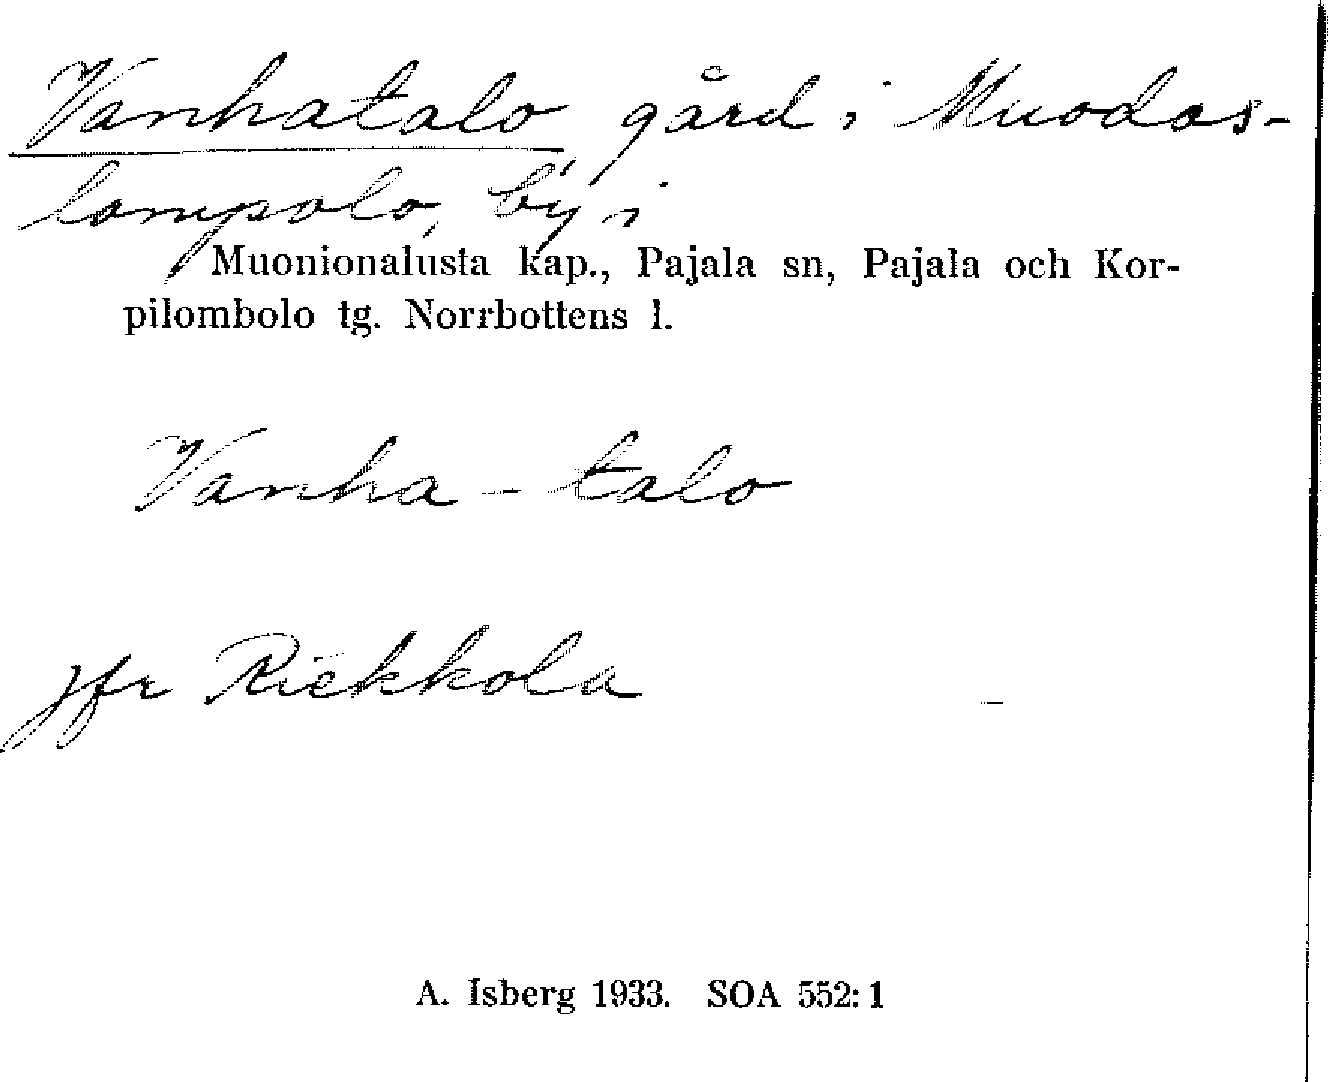 Vanhatalo, gård i Muodos-
lompolo, by i
Muonionalusta kap., Pajala sn, Pajala och Kor-
pilombolo tg. Norrbottens l.
Vanha - talo
jfr Riekkola
A. Isberg 1933. SOA 552:1